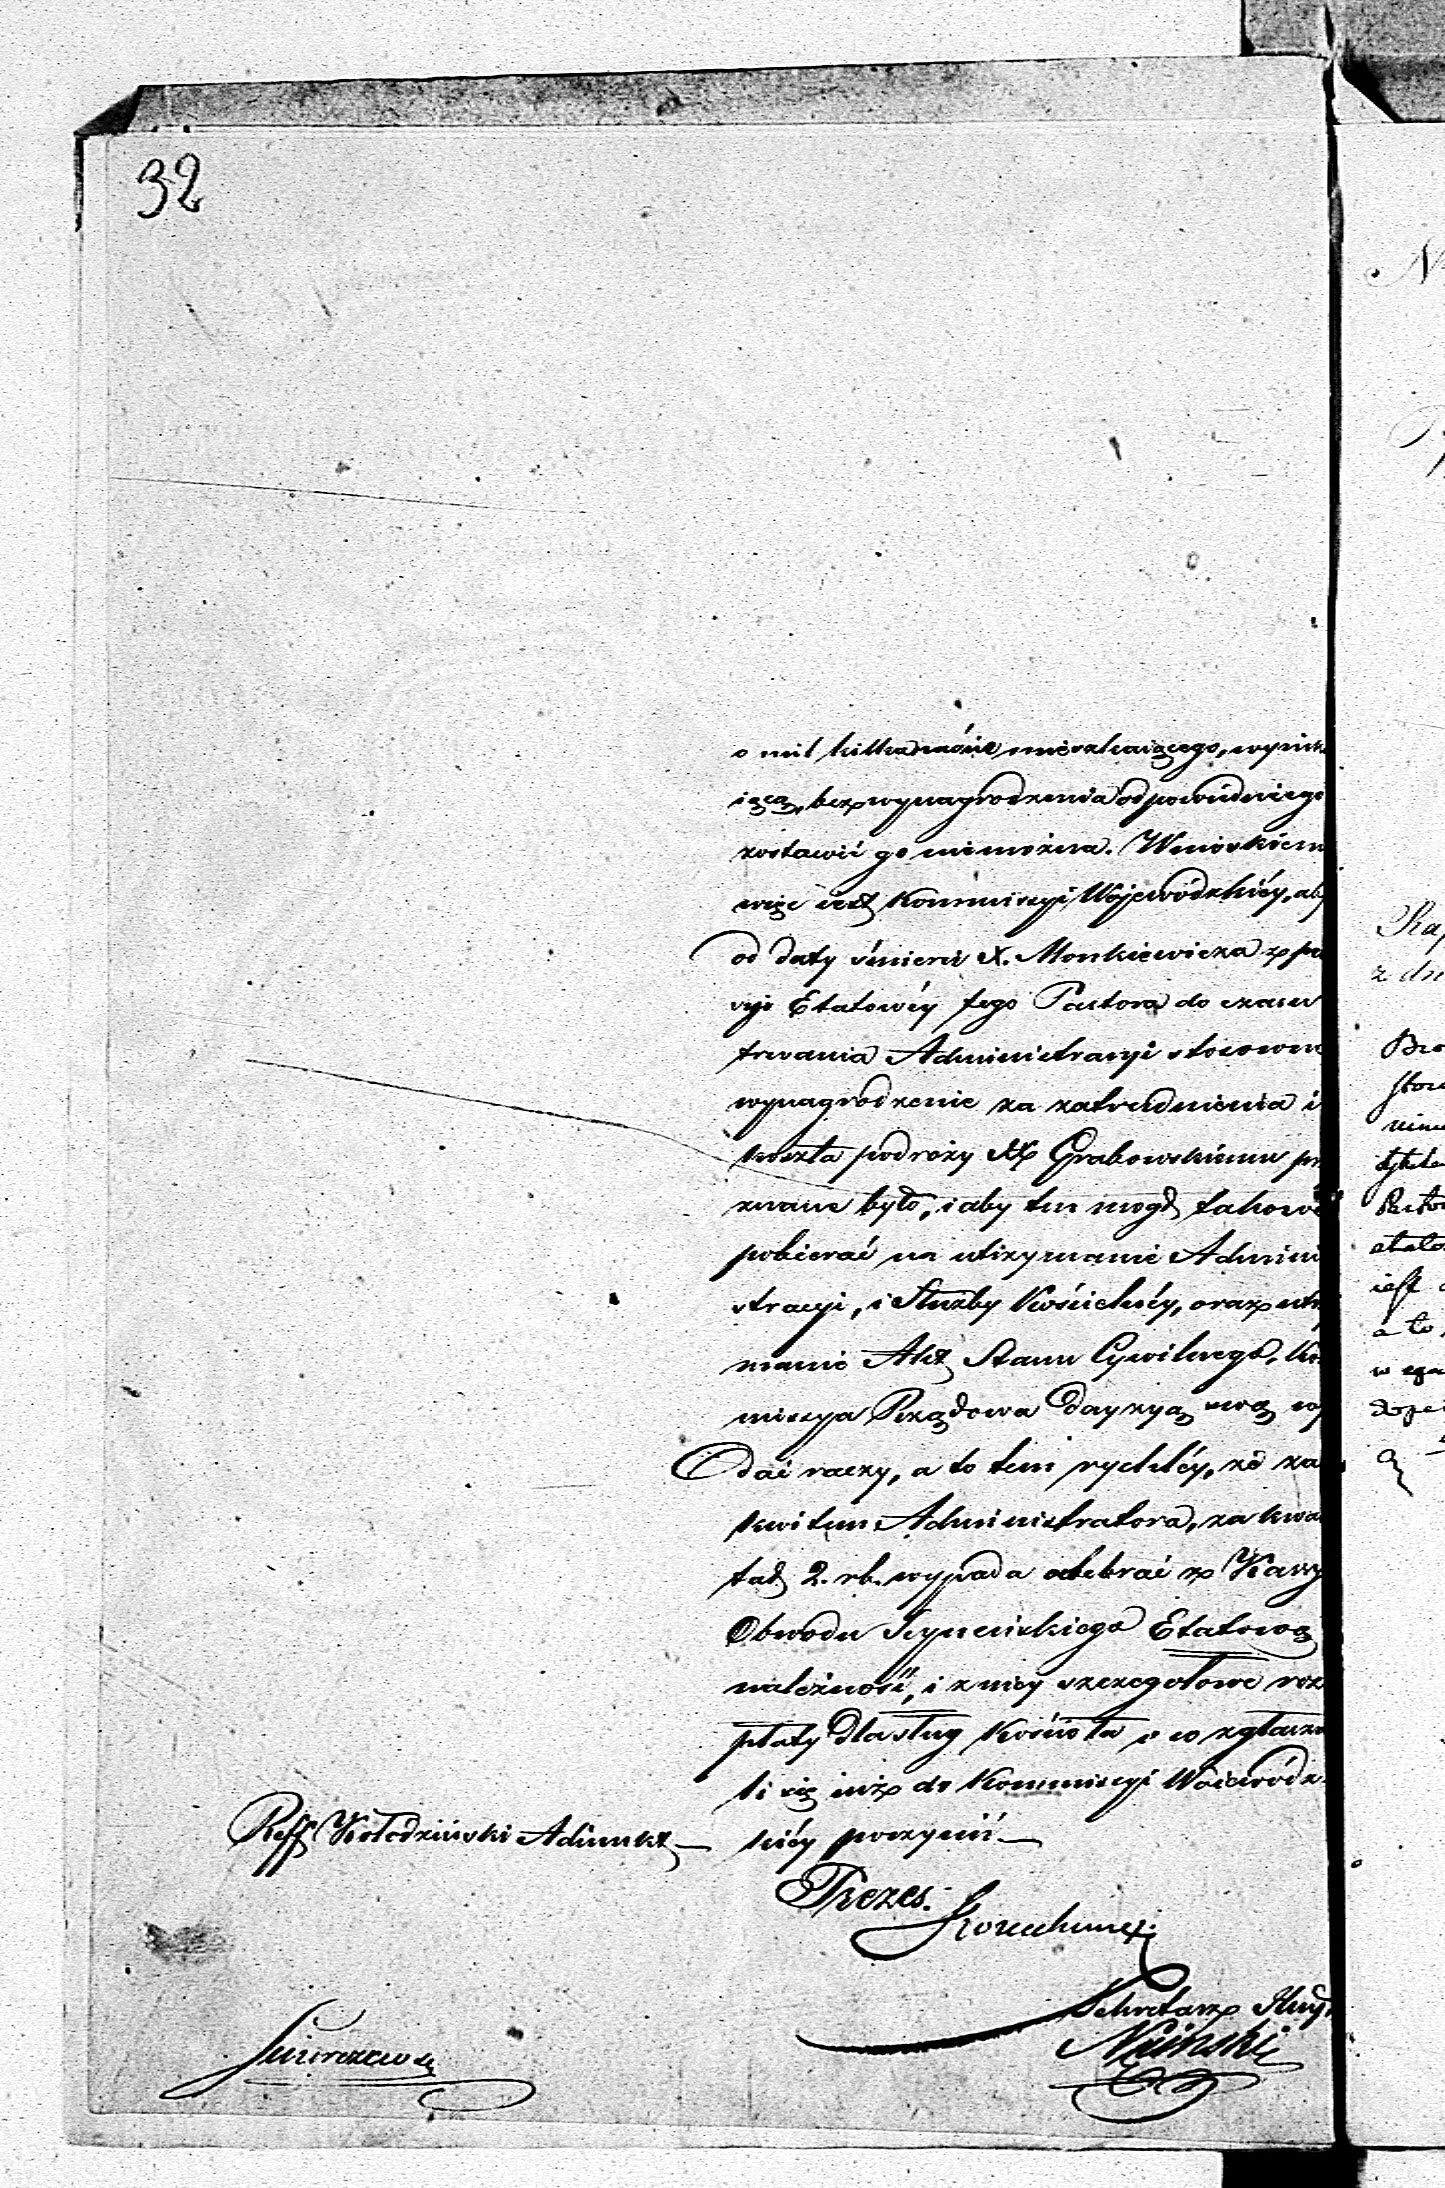 32
o mil kilkanaście mieszkaiącego, wynik
iącą, bez wynagrodzenia odpowiedniego
zostawić go niemożna. Wnioskiem
więc iest Kommissyi Wojewódzkiéy, aby
od daty śmierci X. Monkiewicza z pen
syi Etatowéy tego Pastora do czasu
trwania Administracyi stosowne
wynagrodzenie za zatrudnienia i
koszta podróży X Grabowskiemu prz
znane było, i aby ten mógł takowe
pobierać na utrzymanie Admini
stracyi, i Służby Kościelnéy, oraz utrzy
manie Akt Stanu Cywilnego. Kom
missya Rządowa Decyzyą swą wy
dać raczy, a to tem rychléy, że za
kwitem Administratora, za kwar
tał 2. rb. wypada odebrać z Kassy
Obwodu Seyneńskiego Etatową
należność, i z niéy szczegółowe roz
płaty dla sług Kościoła o co zgłasza
li się iuż do Kommissyi Woiewódz-
kiéy poczynić.
Reff Kołodziński Adiunkt
Prezes.
Sekretarz
Niński
N
Rap
z dn
Pasto
etato
iest
a to
w